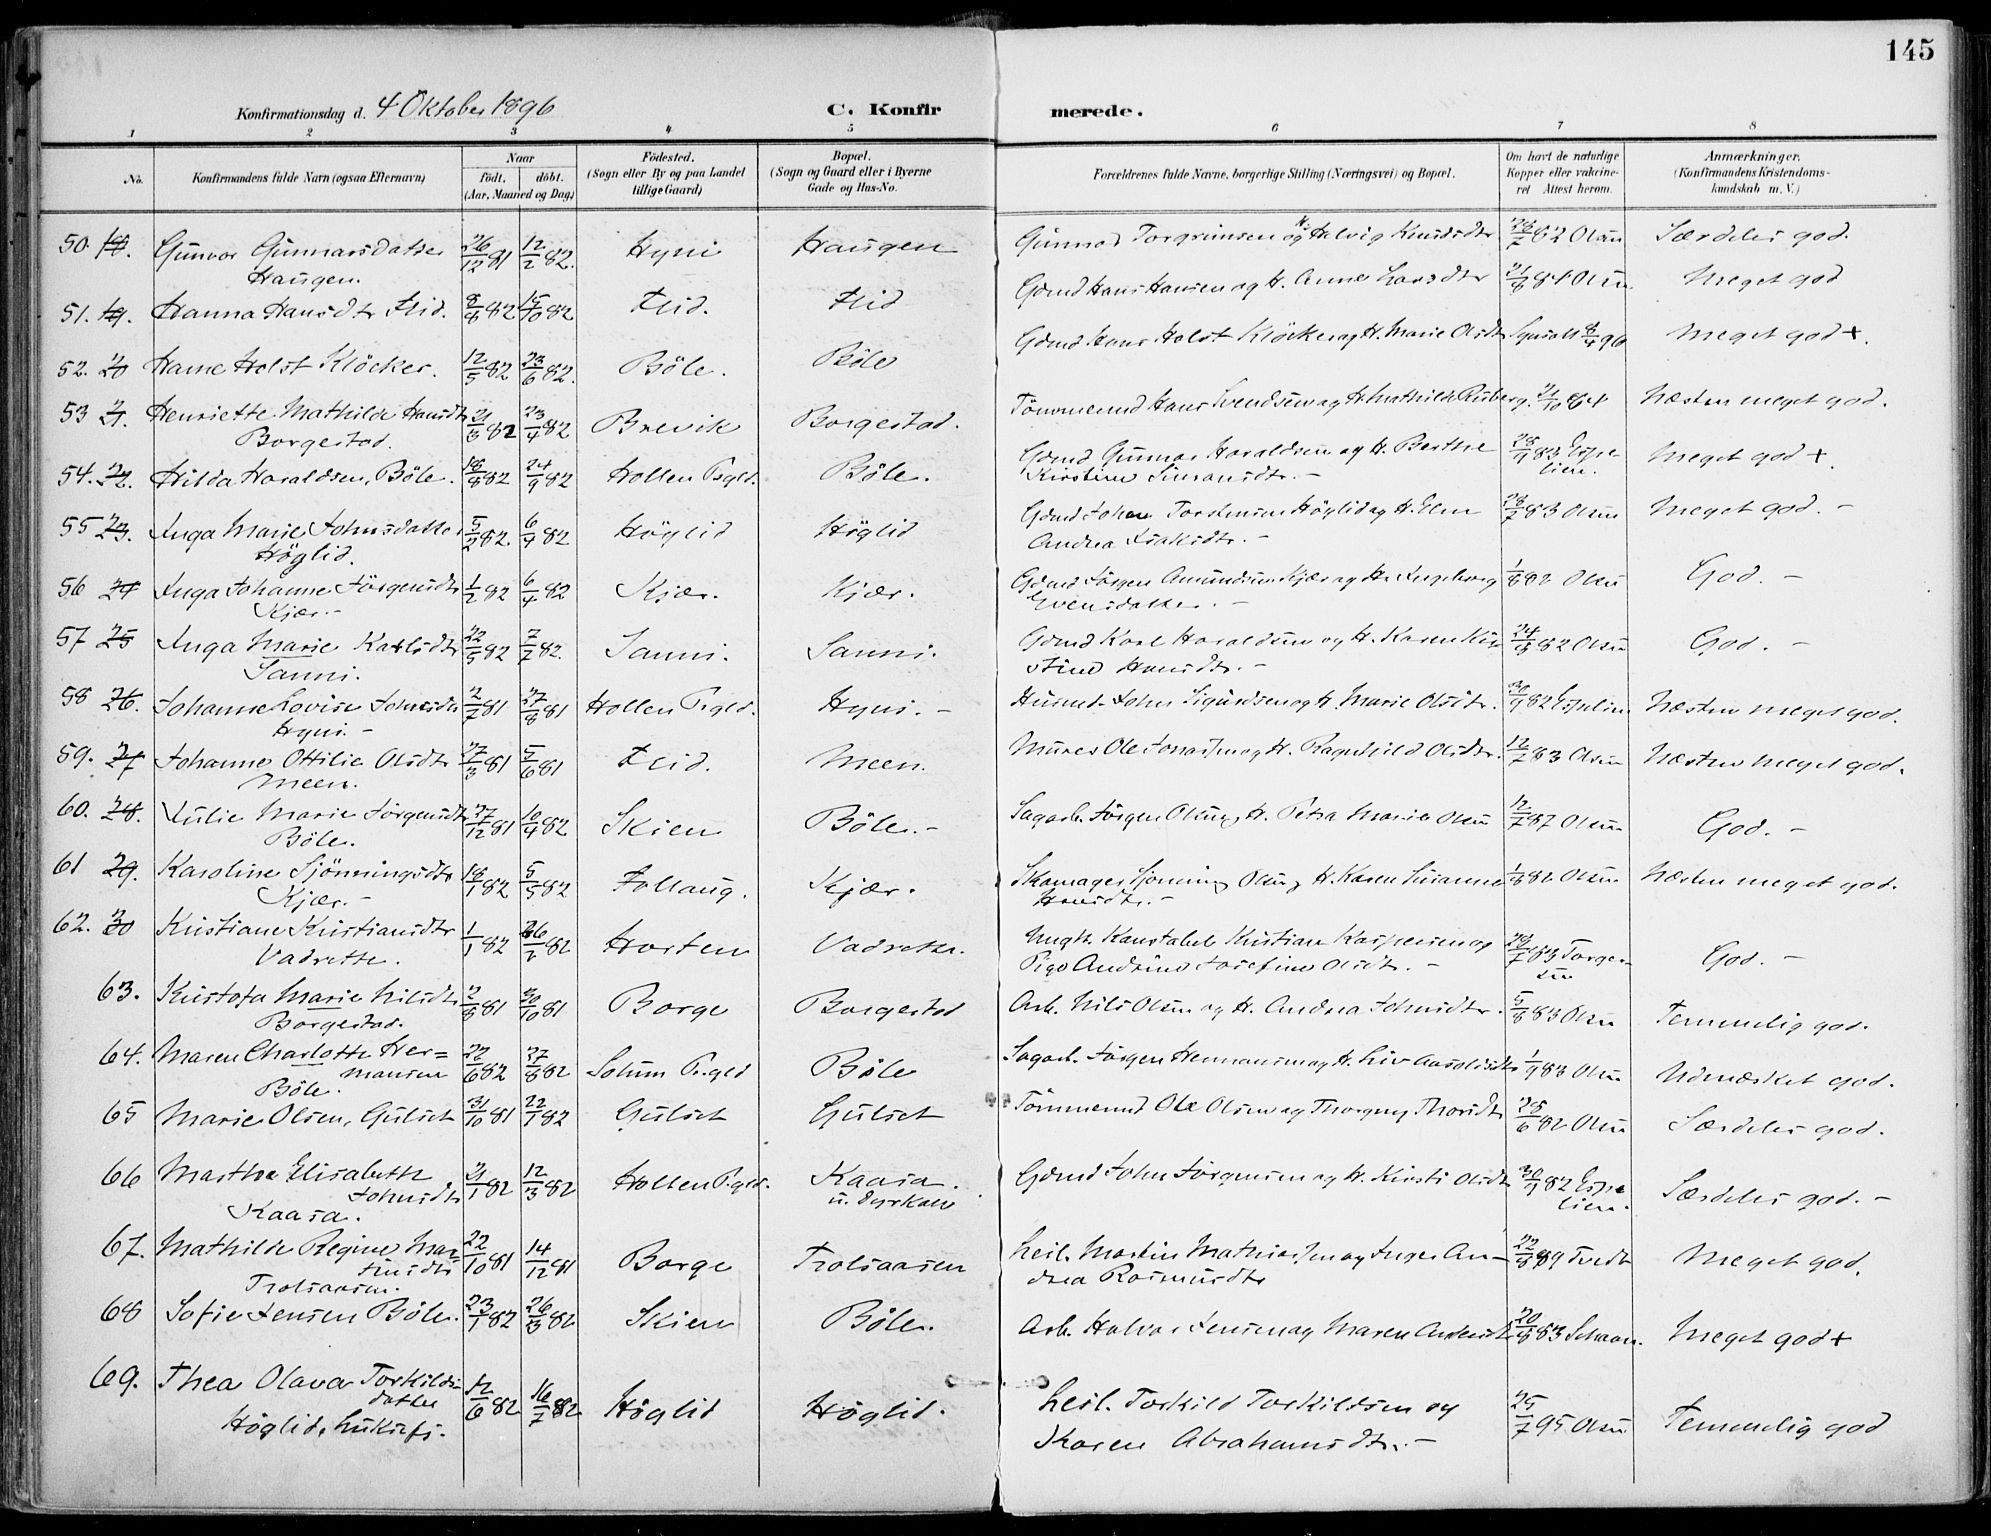 145
Konfirmationsdag d. 4 Oktober 1896
C. Konfirmerede.
1 2 3 4 5 6 7 8
No. Konfirmandens fulde Navn (ogsaa Efternavn) Naar født. døbt. (Aar, Maaned og Dag) Fødested. (Sogn eller By og paa Landet tillige Gaard) Bopæl. (Sogn og Gaard eller i Byerne Gade og Hus-No. Forældrenes fulde Navne, borgerlige Stilling (Næringsvei) og Bopæl. Om havt de naturlige Kopper eller vakcineret Attest herom. Anmærkninger. (Konfirmandens Kristendomskundskab m. V.)
50. 18. Gunvor Gunnarsdatter 26/12 81 12/2 82. Hyni Haugen Gunnar Torgrimsen og H. Helvig Knudsdtr 7 82 Olsen Særdeles god.
Haugen.
51. 19. Hanna Hansdtr Lid. 8/8 82 15/10 82 Lid. Lid Gdmd Hans Hansen og H. Anne Larsdtr 21/8 84 Olsen. Meget god
52. 20 Hanne Holst Kløcker. 12/5 82 23/6 82. Bøle. Bøle Gdmd Hans Holst Kløcker og H. Marie Olsdtr 8/4 96 Meget god +.
53 21. Henriette Mathilde Hansdtr 21/3 82 23/4 82 Brevik Borgestad. Tømmermd Hans Svendsen og H. Mathilde Risberg. 21/10 84 Næsten meget god.
Borgestad.
54. 22. Hilda Haraldsen, Bøle. 18/8 82 24/9 82 Hollen Prgld. Bøle. Gdmd Gunnar Haraldsen og H. Berthe 28/9 83 Espelien. Meget god +.
Kirstine Simonsdtr. -
55 23. Inga Marie Johnsdatter 5/2 82. 6/4 82 Høglid Høglid Gdmd Johan Torstensen Høglid og H. Elen 28/7 83 Olsen Meget god. -
Høglid. Andrea Isaksdtr. -
56 24 Inga Johanne Jørgensdtr 1/2 82 6/4 82 Kjær. Kjær. Gdmd Jørgen Amundsen Kjær og H. Ingeborg 1/8 82 Olsen God. -
Kjær. - Evensdatter. -
57 25 Inga Marie Karlsdtr 22/5 82 7/7 82. Sanni. Sanni. Gdmd Karl Haraldsen og H. Karen Kir- 24/8 82 Olsen God. -
Sanni. stine Hansdtr. -
58 26. Johanne Lovise Johnsdtr 2/7 81 27/8 81 Hollen Prgld. Hyni. - Husmd. John Sigurdsen og H. Marie Olsdtr. 30/9 82 Espelien Næsten meget god.
Hyni. -
59. 27 Johanne Ottilie Olsdtr 27/3 81 5/6 81 Lid. Meen. Murer Ole Jonassen og H. Ragnhild Olsdtr. 12/7 83 Olsen Næsten meget god.
Meen.
60. 28. Julie Marie Jørgensdtr 27/12 81 10/4 82 Skien Bøle. - Sagarb. Jørgen Olsen og H. Petra Marie Olsen 12/7 87 Olsen God. -
Bøle.
61 29. Karoline Sjønningsdtr 18/1 82 5/5 82 Follaug. Kjær. Skomager Sjønning Olsen og H. Karen Susanne 1/8 82 Olsen Næsten meget god.
Kjær. - Hansdtr. -
62. 30 Kristiane Kristiansdtr 1/1 82 26/2 82 Horten Vadrette. Ungk. Konstabel Kristian Kaspersen og 28/7 83 Torgersen God. -
Vadrette. Pige Andrine Josefine Olsdtr. -
63. Kristofa Marie Nilsdtr 2/8 81 30/10 81 Borge Borgestad Arb. Nils Olsen og H. Andrea Johnsdtr. 5/8 83 Olsen Temmelig god.
Borgestad.
64. Maren Charlotte Her= 22/6 82 27/8 82 Solum Prgld Bøle Sagarb. Jørgen Hermansen og H. Liv Aasoldsdtr 1/9 83 Olsen Udmerket god.
mansen
Bøle.
65 Marie Olsen, Gulset 31/10 81 22/1 82 Gulset Gulset Tømmermd Ole Olsen og Thorgun Thorsdtr 28/6 82 Olsen Særdeles god.
66 Marthe Elisabeth 21/1 82 12/3 82 Hollen Prgld. Kaasa. Gdmd John Jørgensen og H. Kirsti Olsdtr 30/9 82 Espelien. Særdeles god. -
Johnsdtr
Kaasa. u. Dyrkolv
67. Mathilde Regine Mar- 22/10 81 14/12 81 Borge Trolsaasen Leil. Martin Mathiassen og Inger An- 22/8 89 Tvedt Meget god.
tinsdtr
Trolsaasen. drea Rasmusdtr
68 Sofie Jensen Bøle. 23/1 82 26/3 82 Skien Bøle. Arb. Halvor Jensen og Maren Andersdtr 20/8 83 Schaan. Meget god +
69. Thea Olava Torkilds- 12/6 82 16/7 82 Høglid Høglid. Leil. Torkild Torkildsen og 25/7 95 Olsen Temmelig god
datter
Høglid, Karen Abrahamsdtr. -